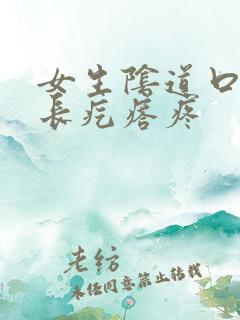 女生陰道口
長疙瘩疼
老紡
未经同意禁止转载